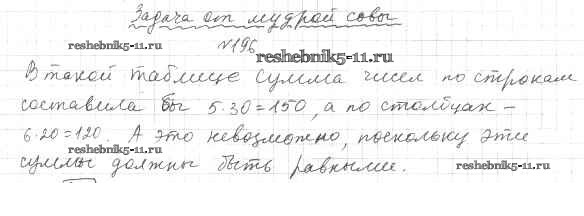 Задача от мудрой совы
reshebnik5-11.ru
№196
reshebnik5-11.ru
В такой таблице сумма чисел по строкам
составила бы 5·30=150, а по столбцам –
6·20=120. А это невозможно, поскольку эти
reshebnik5-11.ru
суммы должны быть равными.
reshebnik5-11.ru